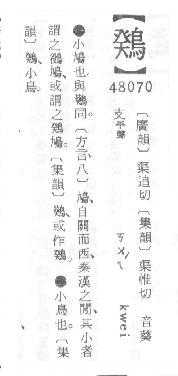 48070
〔廣韻〕渠追切〔集韻〕渠惟切　音葵
支平聲　ㄎㄨㄟˊ　kwei
小鳩也與同〔方言八〕鳩、自關而西秦漢之閒、其小者
謂之鳩、或謂之鳩。〔集韻〕或作。小鳥也。〔集
韻〕小鳥。